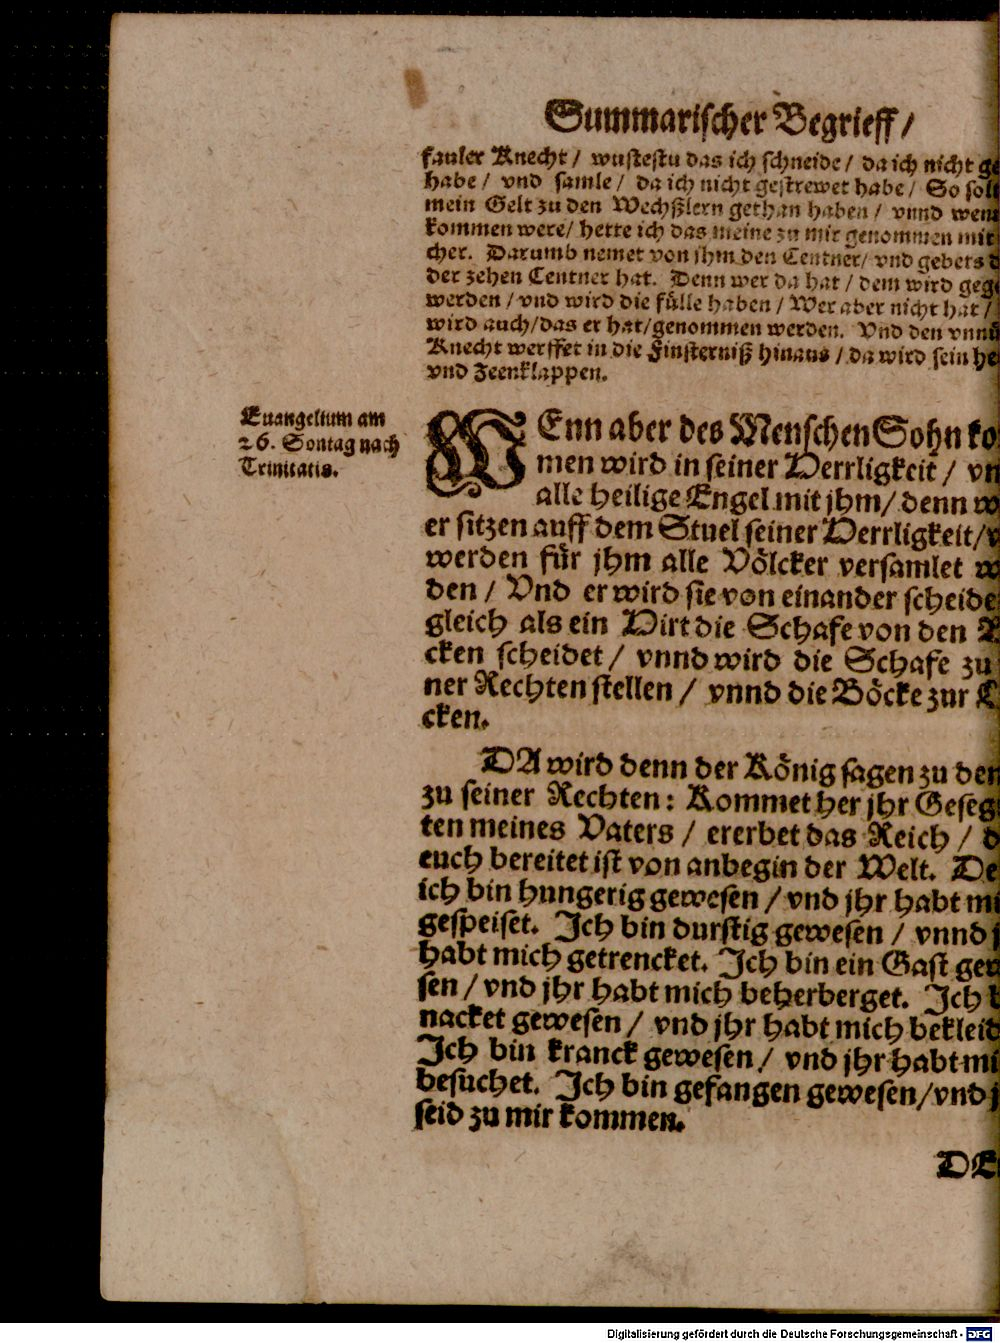 Summarischer Begrieff /
fauler Knecht / wustestu das ich schneide / da ich nicht
habe / vnd samle / da ich nicht gestrewet habe / So
mein Gelt zu den Wechßlern gethan haben / vnnd
kommen were / hette ich das meine zu mir genommen mit
cher. Darumb nemet von jhm den Centner / vnd gebers
der zehen Centner hat. Denn wer da hat / dem wird
werden / vnd wird die fülle haben / Wer aber nicht hat /
wird auch / das er hat / genommen werden. Vnd den
Knecht werffet in die Finsterniß hinaus / da wird sein
vnd Zeenklappen.
Euangelium am
26. Sontag nach
Trinitatis.
WEnn aber des Menschen Sohn ko
men wird in seiner Herrligkeit / vn
alle heilige Engel mit jhm / denn
er sitzen auff dem Stuel seiner Herrligkeit /
werden für jhm alle Völcker versamlet
den / Vnd er wird sie von einander scheide
gleich als ein Hirt die Schafe von den
cken scheidet / vnnd wird die Schafe zu
ner Rechten stellen / vnnd die Böcke zur
cken.
DA wird denn der König sagen zu den
zu seiner Rechten: Kommet her jhr Geseg
ten meines Vaters / ererbet das Reich /
euch bereitet ist von anbegin der Welt. De
ich bin hungerig gewesen / vnd jhr habt mi
gespeiset. Ich bin durstig gewesen / vnnd
habt mich getrencket. Ich bin ein Gast gew
sen / vnd jhr habt mich beherberget. Ich
nacket gewesen / vnd jhr habt mich bekleid
Ich bin kranck gewesen / vnd jhr habt mi
besuchet. Ich bin gefangen gewesen / vnd
seid zu mir kommen.
DE
Digitalisierung gefördert durch die Deutsche Forschungsgemeinschaft - DFG